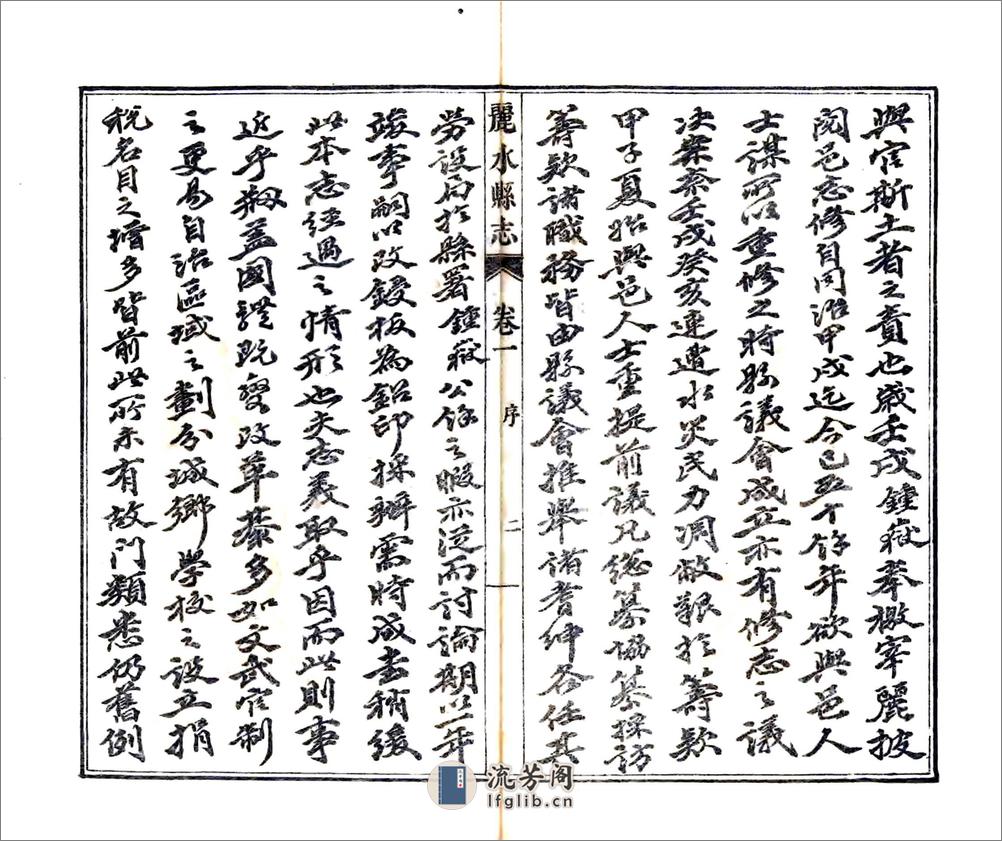 與官斯土者之責也歲壬戌鍾嶽奉檄宰麗披
閱邑志修自同治甲戌迄今已五十餘年欲與邑人
士謀所以重修之時縣議會成立亦有修志之議
決案奈壬戌癸亥連遭水災民力凋敝艱於籌款
甲子夏始與邑人士重提前議凡總纂協纂採訪
籌欵諸職務皆由縣議會推舉諸耆紳各任其
麗水縣志 卷一 序 二
勞設局於縣署鍾嶽公餘之暇亦從而討論期以一年
竣事嗣以改鋟板為鉛印採辦需時成書稍緩
此本志經過之情形也夫志義取乎因而此則事
近乎剏蓋國體既變改革綦多如文武官制
之更易自治區域之劃分城鄉學校之設立捐
稅名目之增多皆前此所未有故門類悉仍舊例
流芳阁
lfglib.cn